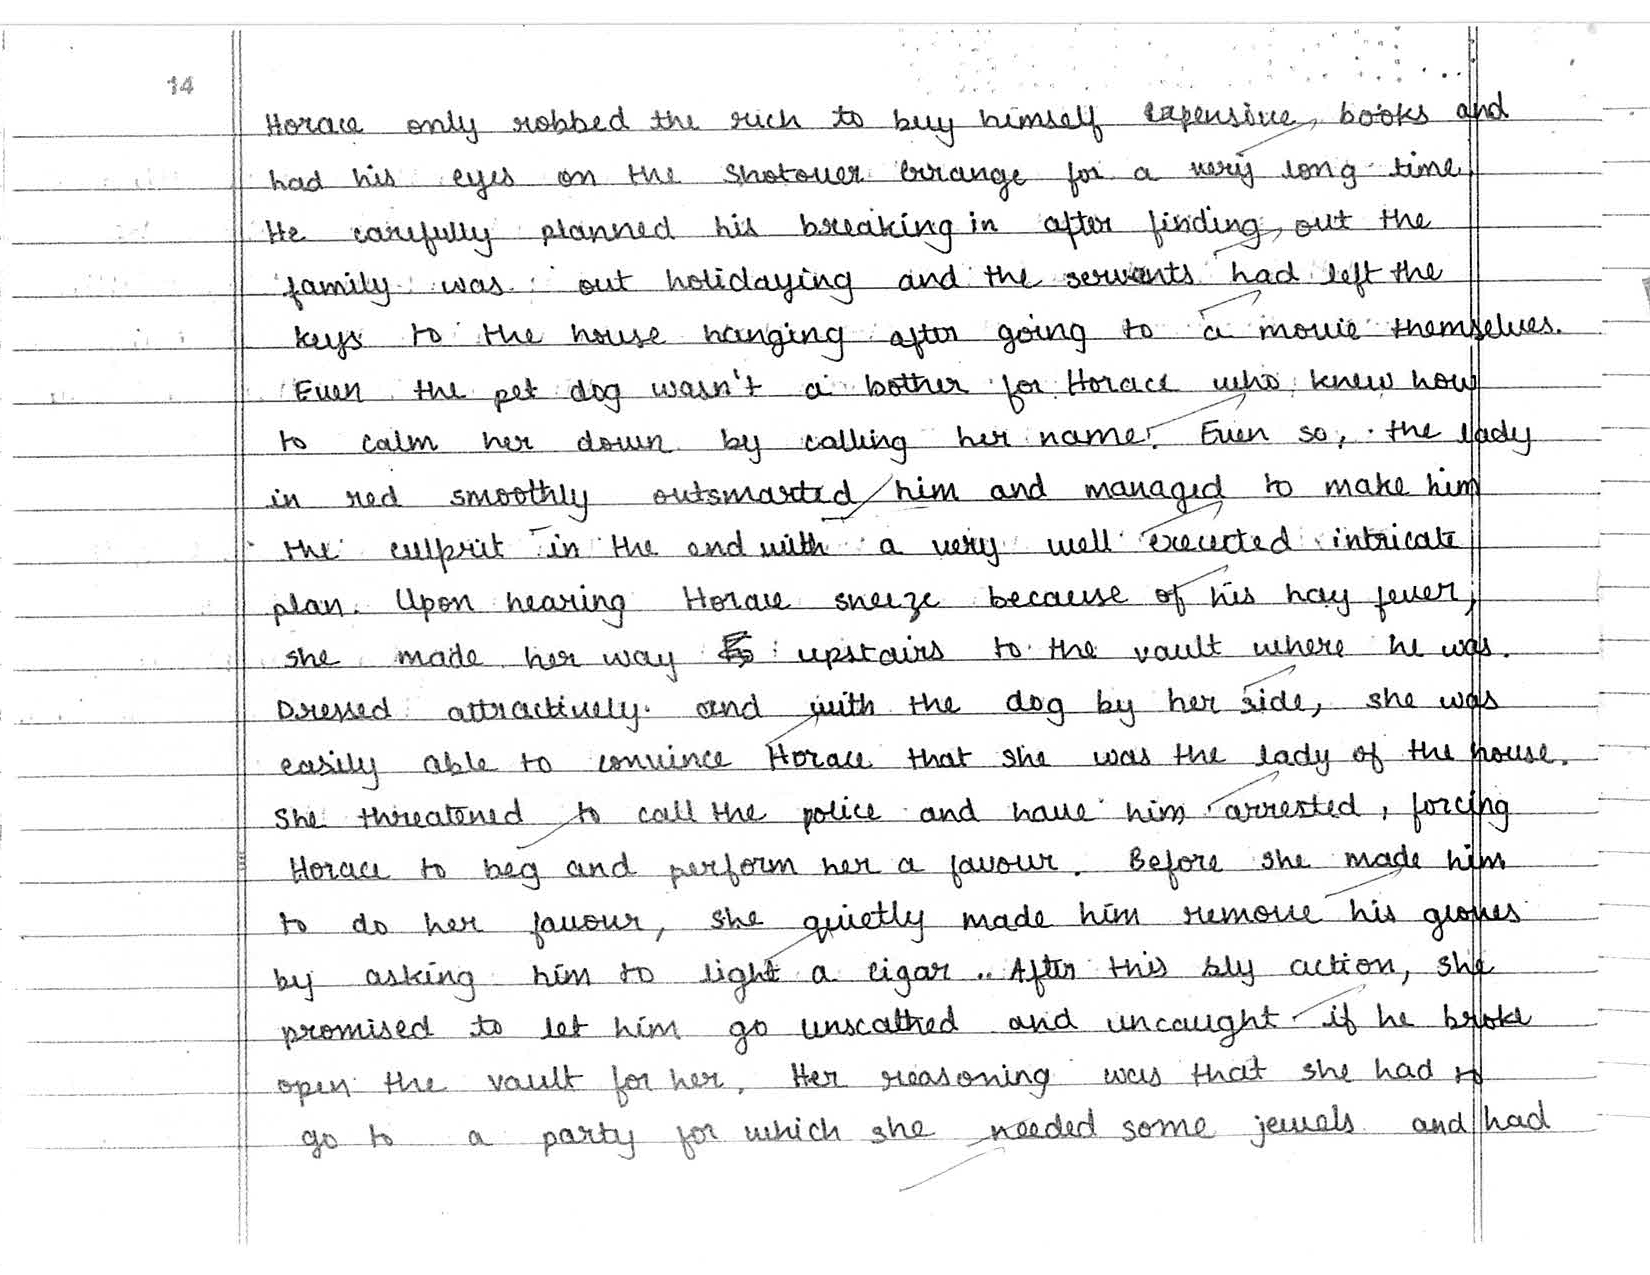 14
Horace only robbed the rich to buy himself expensive books and
had his eyes on the Shotover Grange for a very long time.
He carefully planned his breaking in after finding out the
family was out holidaying and the servants had left the
keys to the house hanging after going to a movie themselves.
Even the pet dog wasn't a bother for Horace who knew how
to calm her down by calling her name. Even so, the lady
in red smoothly outsmarted him and managed to make him
the culprit in the end with a very well executed intricate
plan. Upon hearing Horace sneeze because of his hay fever,
she made her way upstairs to the vault where he was.
Dressed attractively and with the dog by her side, she was
easily able to convince Horace that she was the lady of the house.
She threatened to call the police and have him arrested, forcing
Horace to beg and perform her a favour. Before she made him
to do her favour, she quietly made him remove his gloves
by asking him to light a cigar.. After this sly action, she
promised to let him go unscathed and uncaught if he broke
open the vault for her. Her reasoning was that she had to
go to a party for which she needed some jewels and had